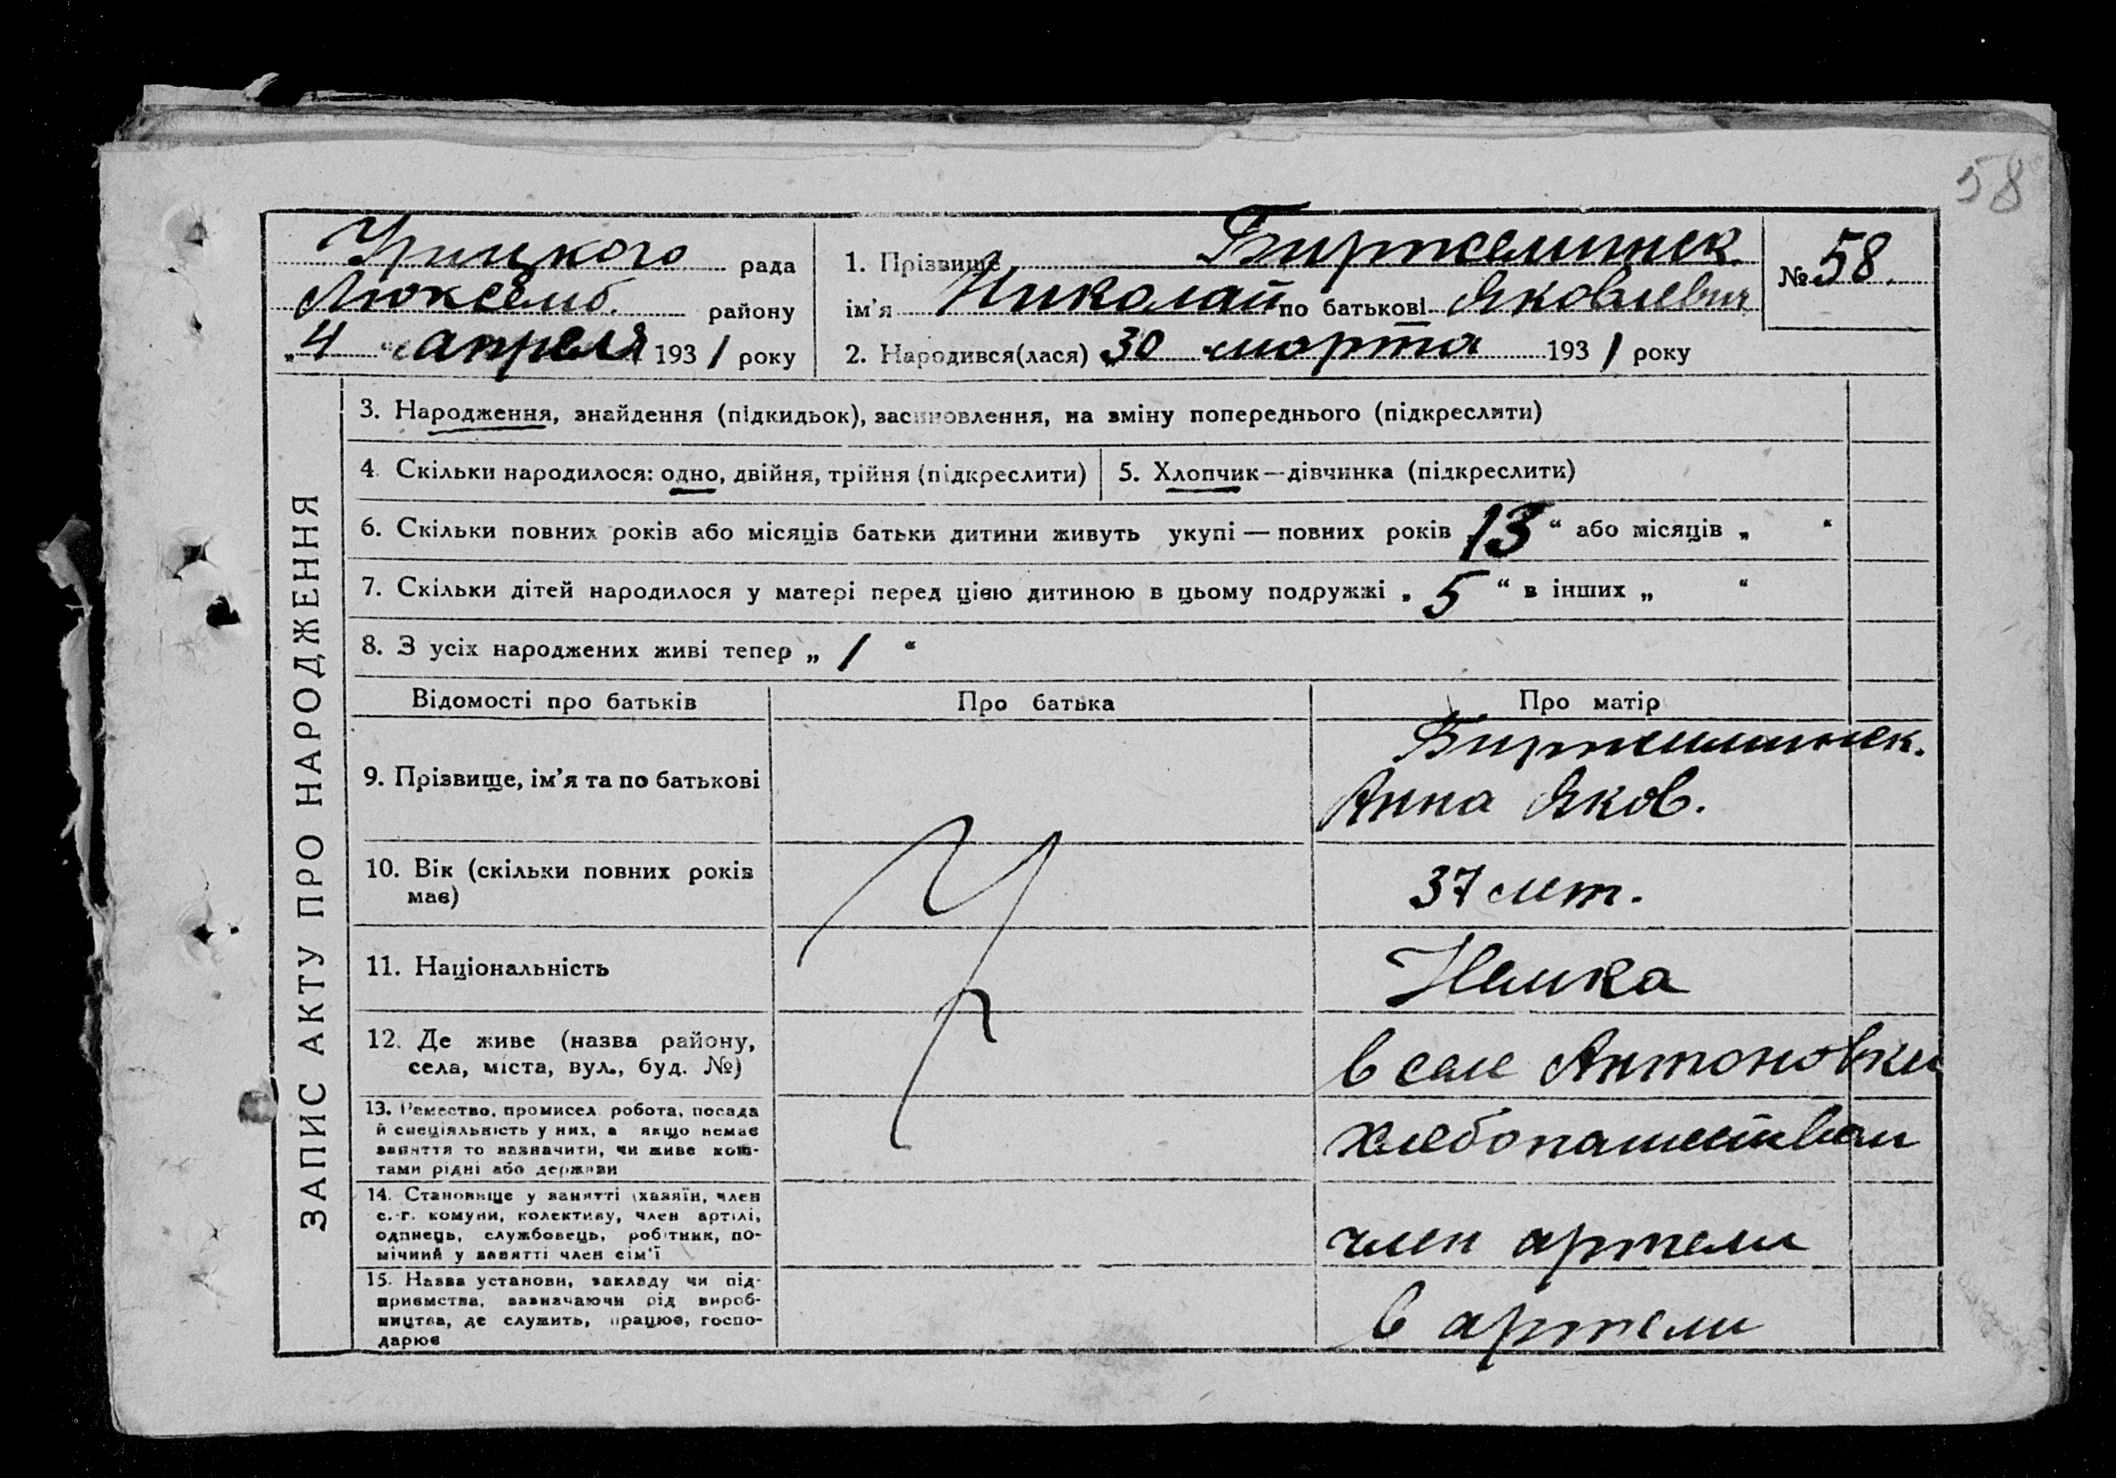 58
Урицкого рада
Люксемб. району
„4“ апреля 1931 року
1. Прізвище Биржелинек
ім'я Николай по батькові Яковлевич
2. Народився(лася) „30 марта 1931 року
№ 58.
ЗАПИС АКТУ ПРО НАРОДЖЕННЯ
3. Народження, знайдення (підкидьок), засиновлення, на зміну попереднього (підкреслити)
4. Скільки народилося: одно, двійня, трійня (підкреслити)
5. Хлопчик—дівчинка (підкреслити)
6. Скільки повних років або місяців батьки дитини живуть укупі — повних років 13 “ або місяців „ “
7. Скільки дітей народилося у матері перед цією дитиною в цьому подружжі „ 5 “ в інших „ “
8. З усіх народжених живі тепер „ 1 “
Відомості про батьків
Про батька
Про матір
9. Прізвище, ім'я та по батькові
Биржелинек.
Анна Яков.
10. Вік (скільки повних років
має)
37 лет.
11. Національність
Немка
12. Де живе (назва району,
села, міста, вул., буд. №)
в селе Антоновки
13. Ремество, промисел робота, посада
й спеціяльність у них, а якщо немає
заняття то вазначити, чи живе кош-
тами рідні або держави
хлебопашеством
14. Становище у занятті (хазяїн, член
с.-г. комуни, колективу, член артілі,
одинець, службовець, робітник, по-
мічний у занятті член сім'ї
член артели
15. Назва установи, закладу чи під-
приємства, вазначаючи рід вироб-
ництва, де служить, працює, госпо-
дарює
в артели